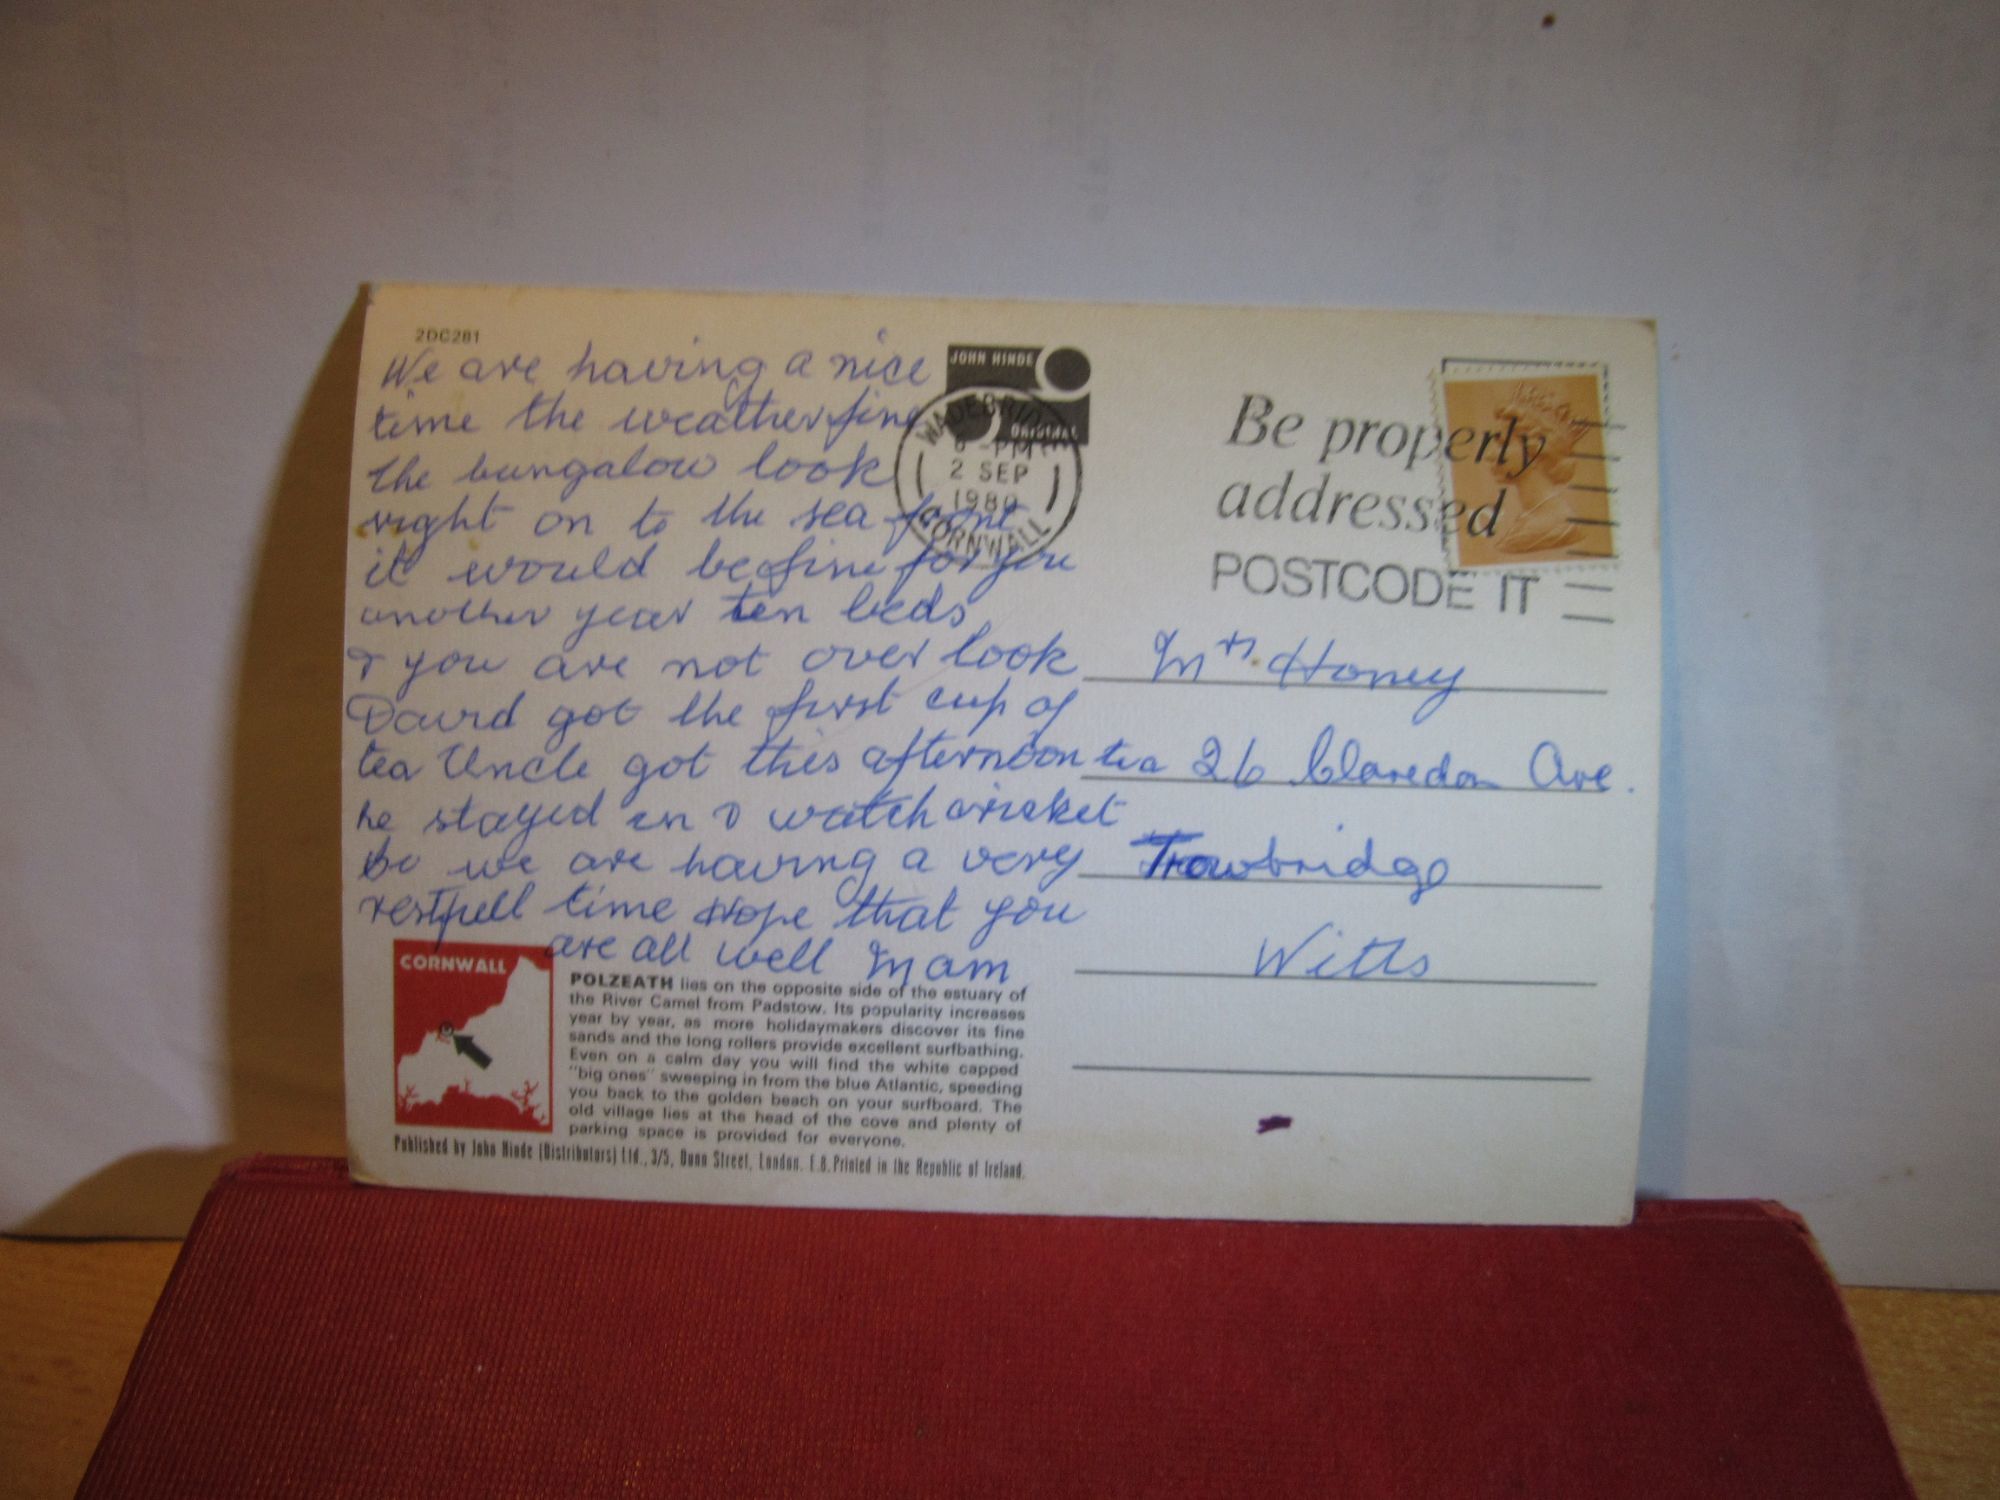 2DC281
We are having a nice
time the weather fine
the bungalow look
right on to the sea front
it would be fine for you
another year ten beds
& you are not over look
David got the first cup of
tea Uncle got this afternoon tea
he stayed in & watch cricket
So we are having a very
restfull time Hope that you
are all well Mam
JOHN HINDE
ORIGINAL
WADEBRIDGE
PM
2 SEP
1980
CORNWALL
Be properly
addressed
POSTCODE IT
Mrs. Honey
26 Claredon Ave.
Trowbridge
Witts
CORNWALL
POLZEATH lies on the opposite side of the estuary of
the River Camel from Padstow. Its popularity increases
year by year, as more holidaymakers discover its fine
sands and the long rollers provide excellent surfbathing.
Even on a calm day you will find the white capped
"big ones" sweeping in from the blue Atlantic, speeding
you back to the golden beach on your surfboard. The
old village lies at the head of the cove and plenty of
parking space is provided for everyone.
Published by John Hinde (Distributors) Ltd., 3/5, Dunn Street, London. E.8. Printed in the Republic of Ireland.